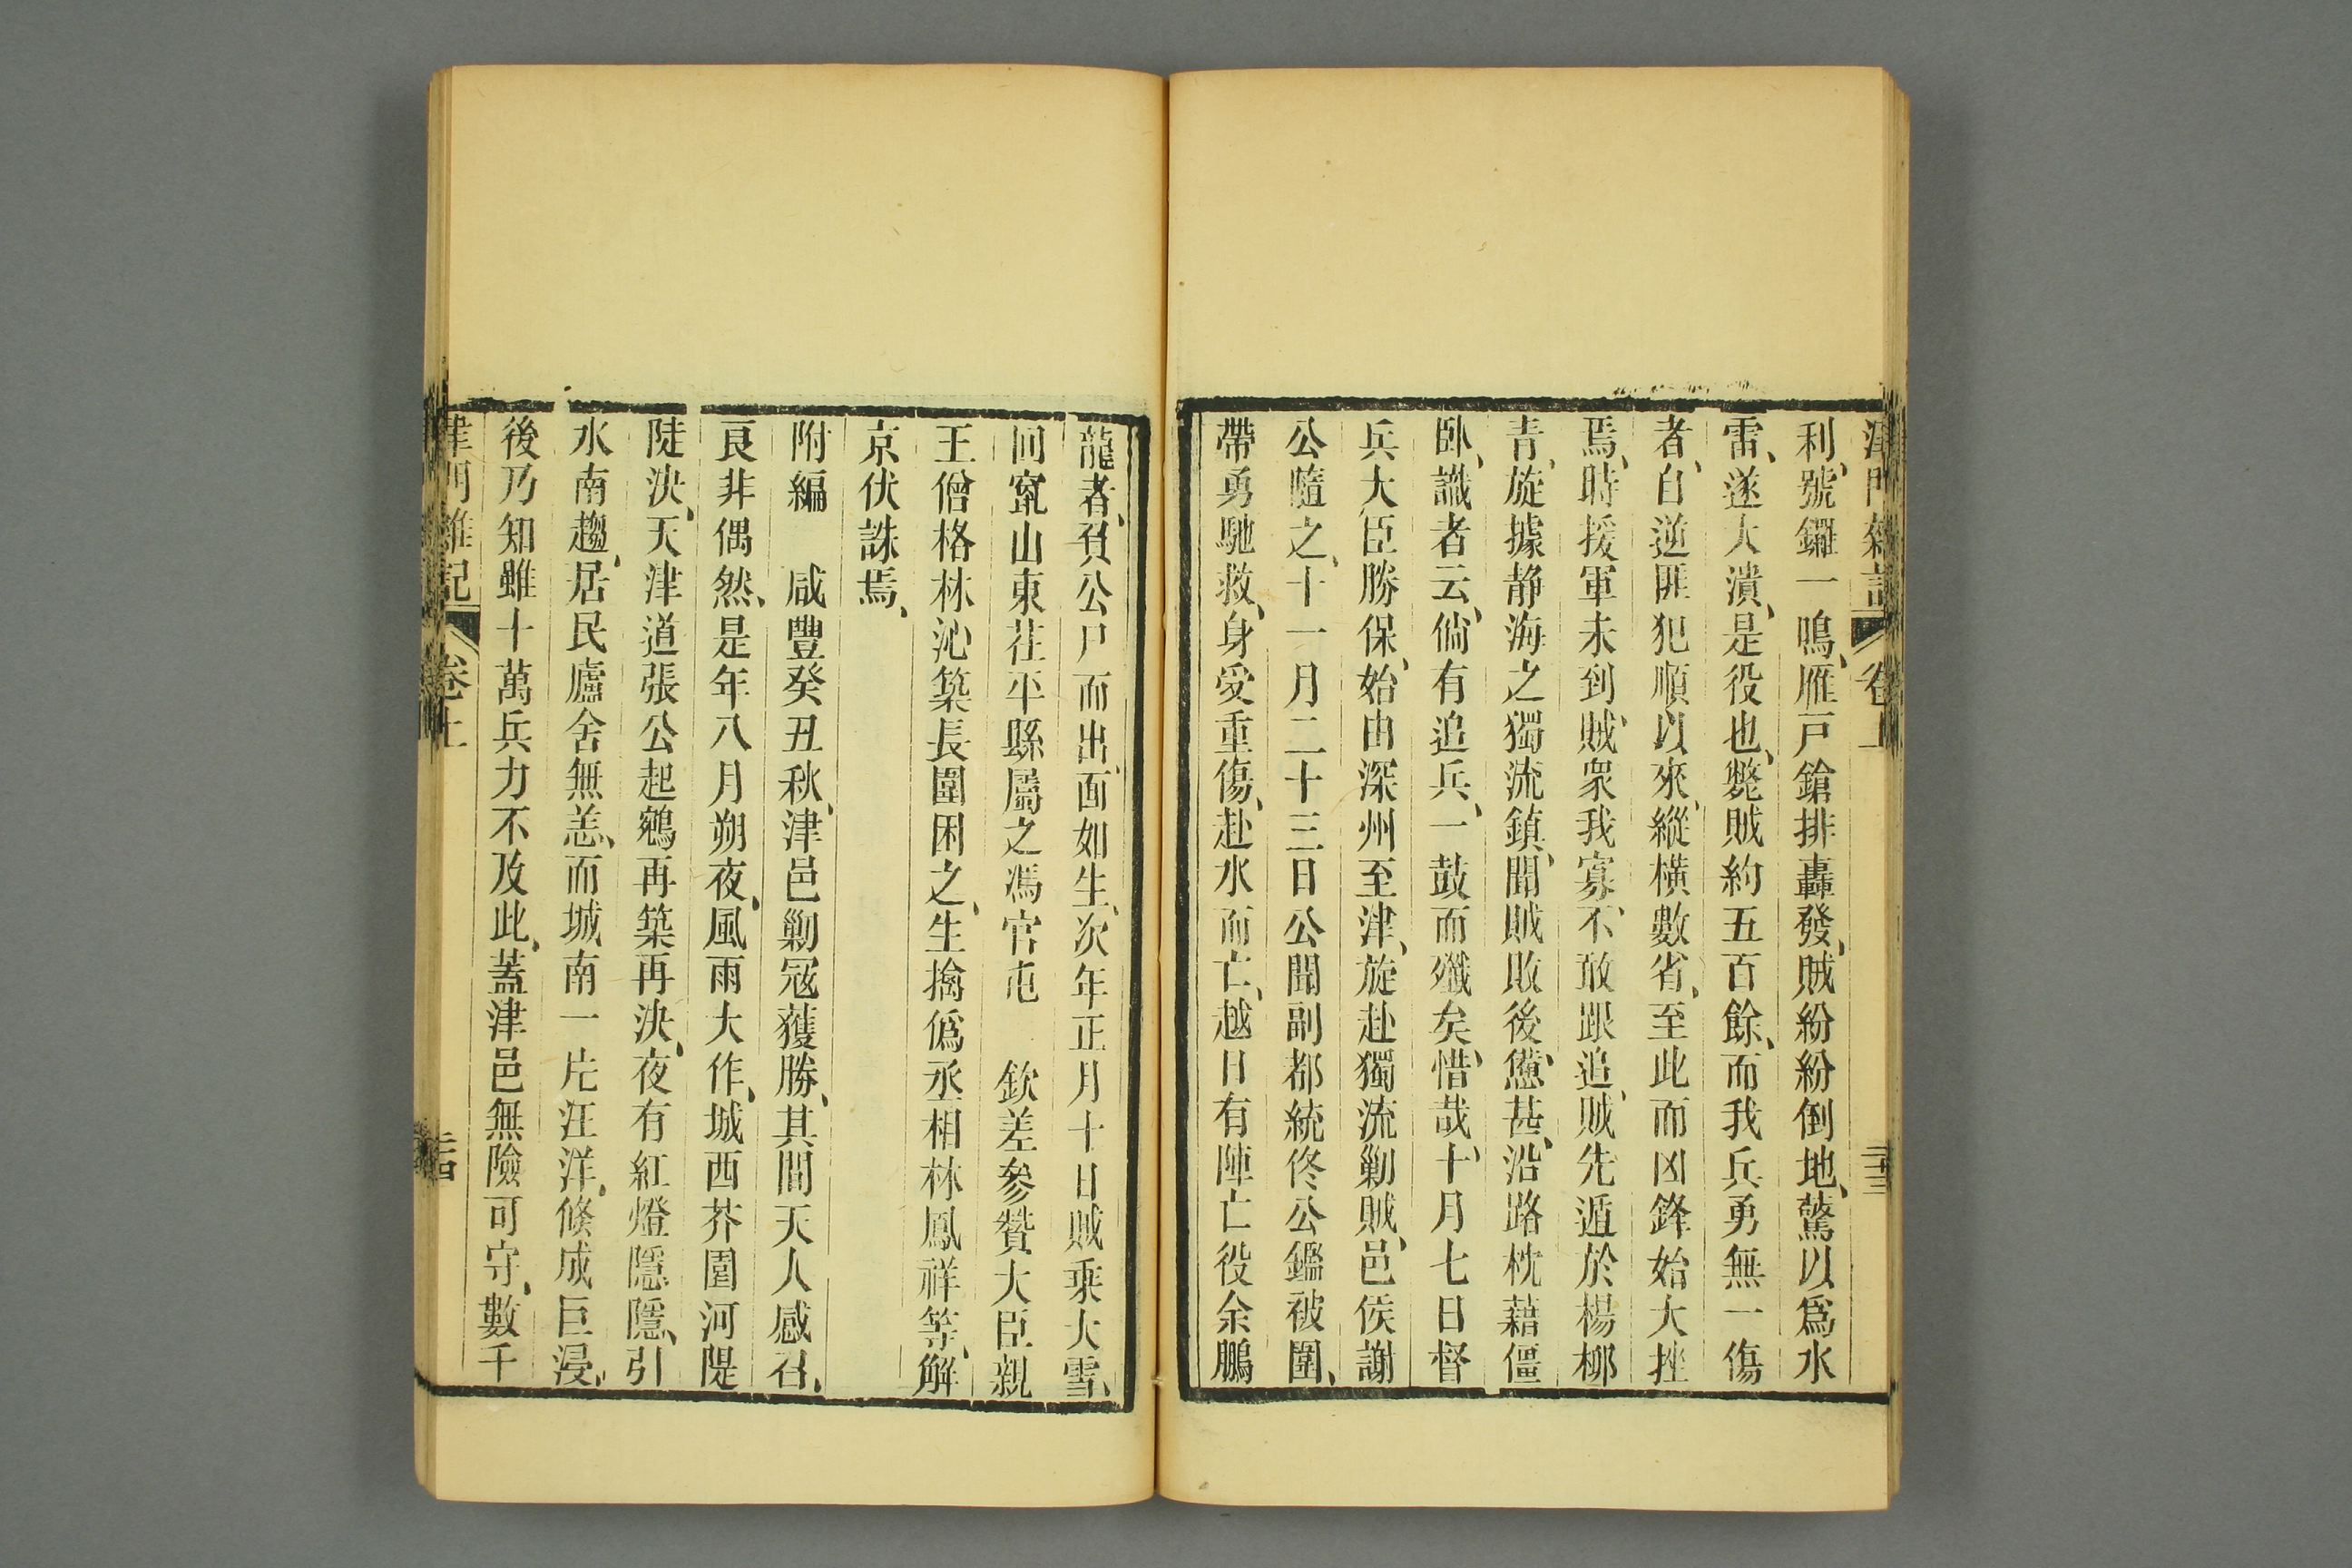 津門雜記 卷上 二十三
利、號鑼一鳴、雁戸鎗排轟發、賊紛紛倒地、驚以爲水
雷、遂大潰、是役也、斃賊約五百餘、而我兵勇無一傷
者、自逆匪犯順以來、縱橫數省、至此而凶鋒始大挫
焉、時援軍未到、賊衆我寡、不敢跟追、賊先遁於楊柳
青、旋據静海之獨流鎮、聞賊敗後、憊甚、沿路枕藉僵
卧、識者云、倘有追兵、一鼓而殲矣、惜哉、十月七日督
兵大臣勝保、始由深州至津、旋赴獨流勦賊、邑侯謝
公隨之、十一月二十三日公聞副都統佟公鑑被圍、
帶勇馳救、身受重傷、赴水而亡、越日有陣亡役余鵬
龍者、負公尸而出、面如生、次年正月十日賊乘大雪、
回竄山東茌平縣屬之馮官屯 欽差參贊大臣親
王僧格林沁築長圍困之、生擒僞丞相林鳳祥等、解
京伏誅焉、
附編 咸豐癸丑秋、津邑勦冦獲勝、其間天人感召、
良非偶然、是年八月朔夜、風雨大作、城西芥園河隄
陡決、天津道張公起鵷再築再決、夜有紅燈隱隱、引
水南趨、居民廬舍無恙、而城南一片汪洋、倐成巨浸、
後乃知雖十萬兵力不及此、蓋津邑無險可守、數千
津門雜記 卷上